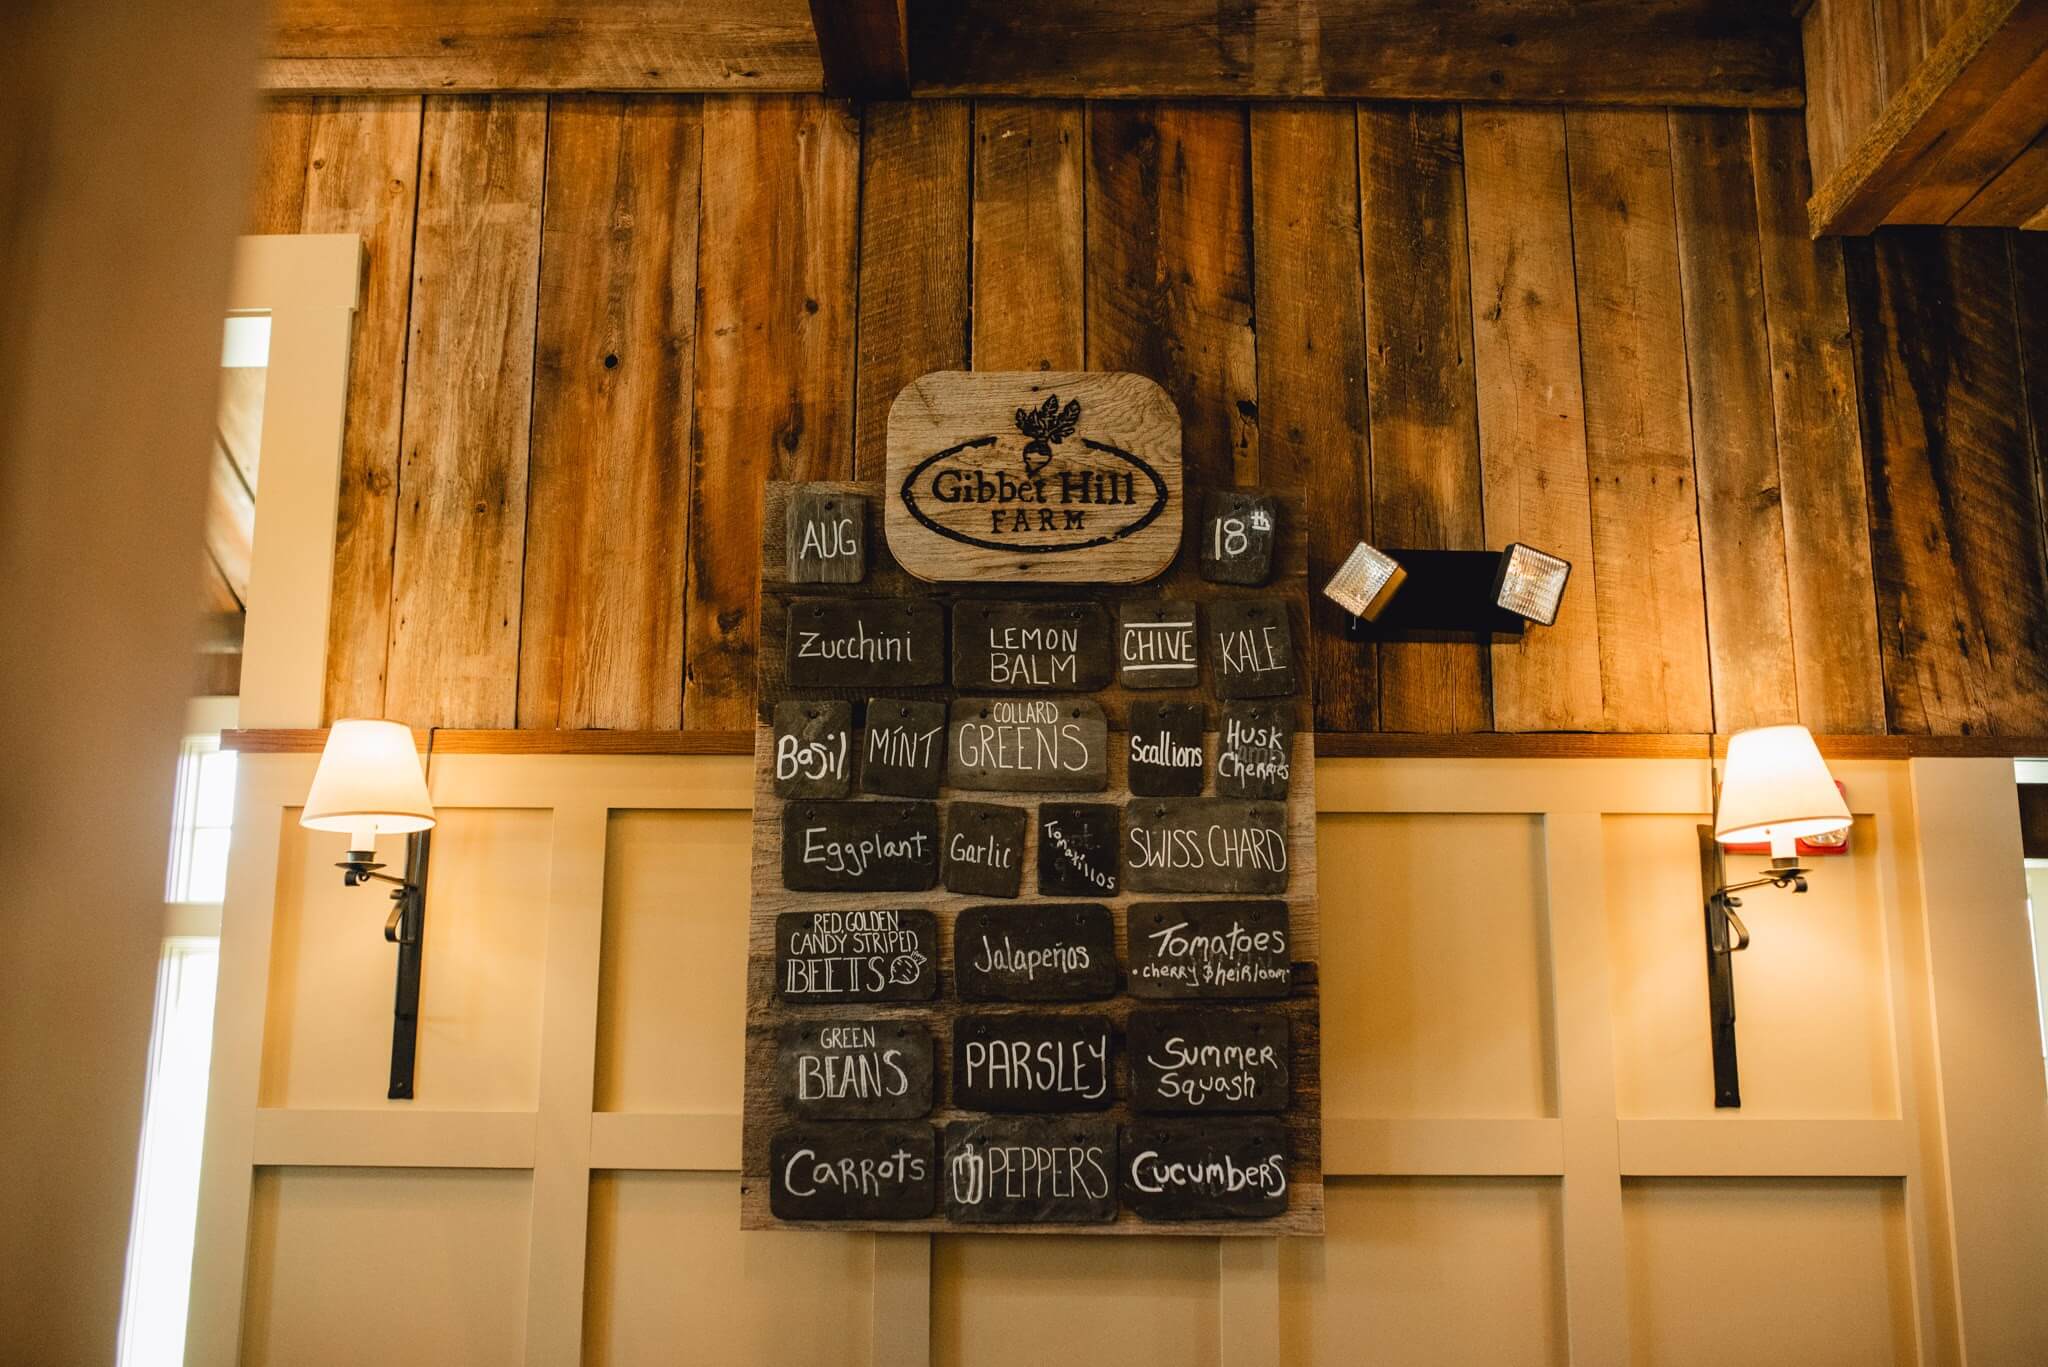 Gibbet Hill
FARM
AUG
18th
Zucchini
LEMON
BALM
CHIVE
KALE
Basil
MINT
COLLARD
GREENS
Scallions
HUSK
CHERRIES
Eggplant
Garlic
Tomatillos
SWISS CHARD
RED, GOLDEN
CANDY STRIPED
BEETS
Jalapeños
TOMATOES
• CHERRY & HEIRLOOM •
GREEN
BEANS
PARSLEY
SUMMER
SQUASH
CARROTS
PEPPERS
CUCUMBERS